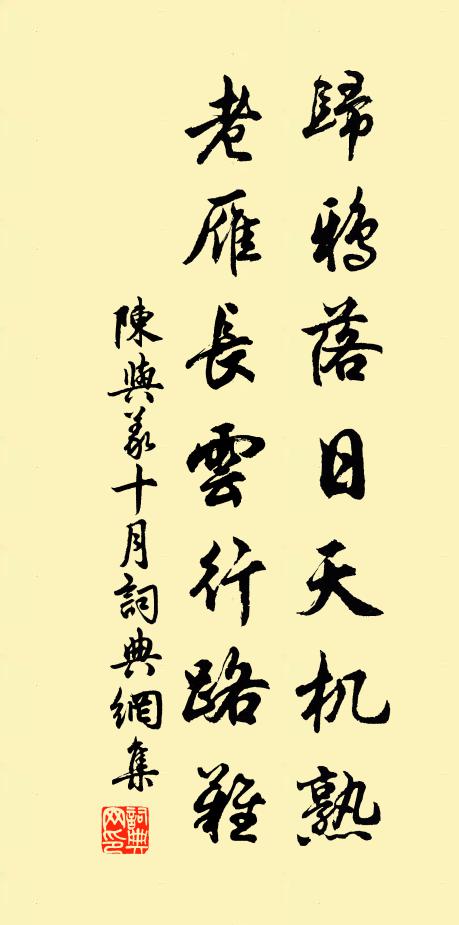 歸鴉落日天机熟
老雁長雲行路難
陳與義十月詞典網集
詞典網印